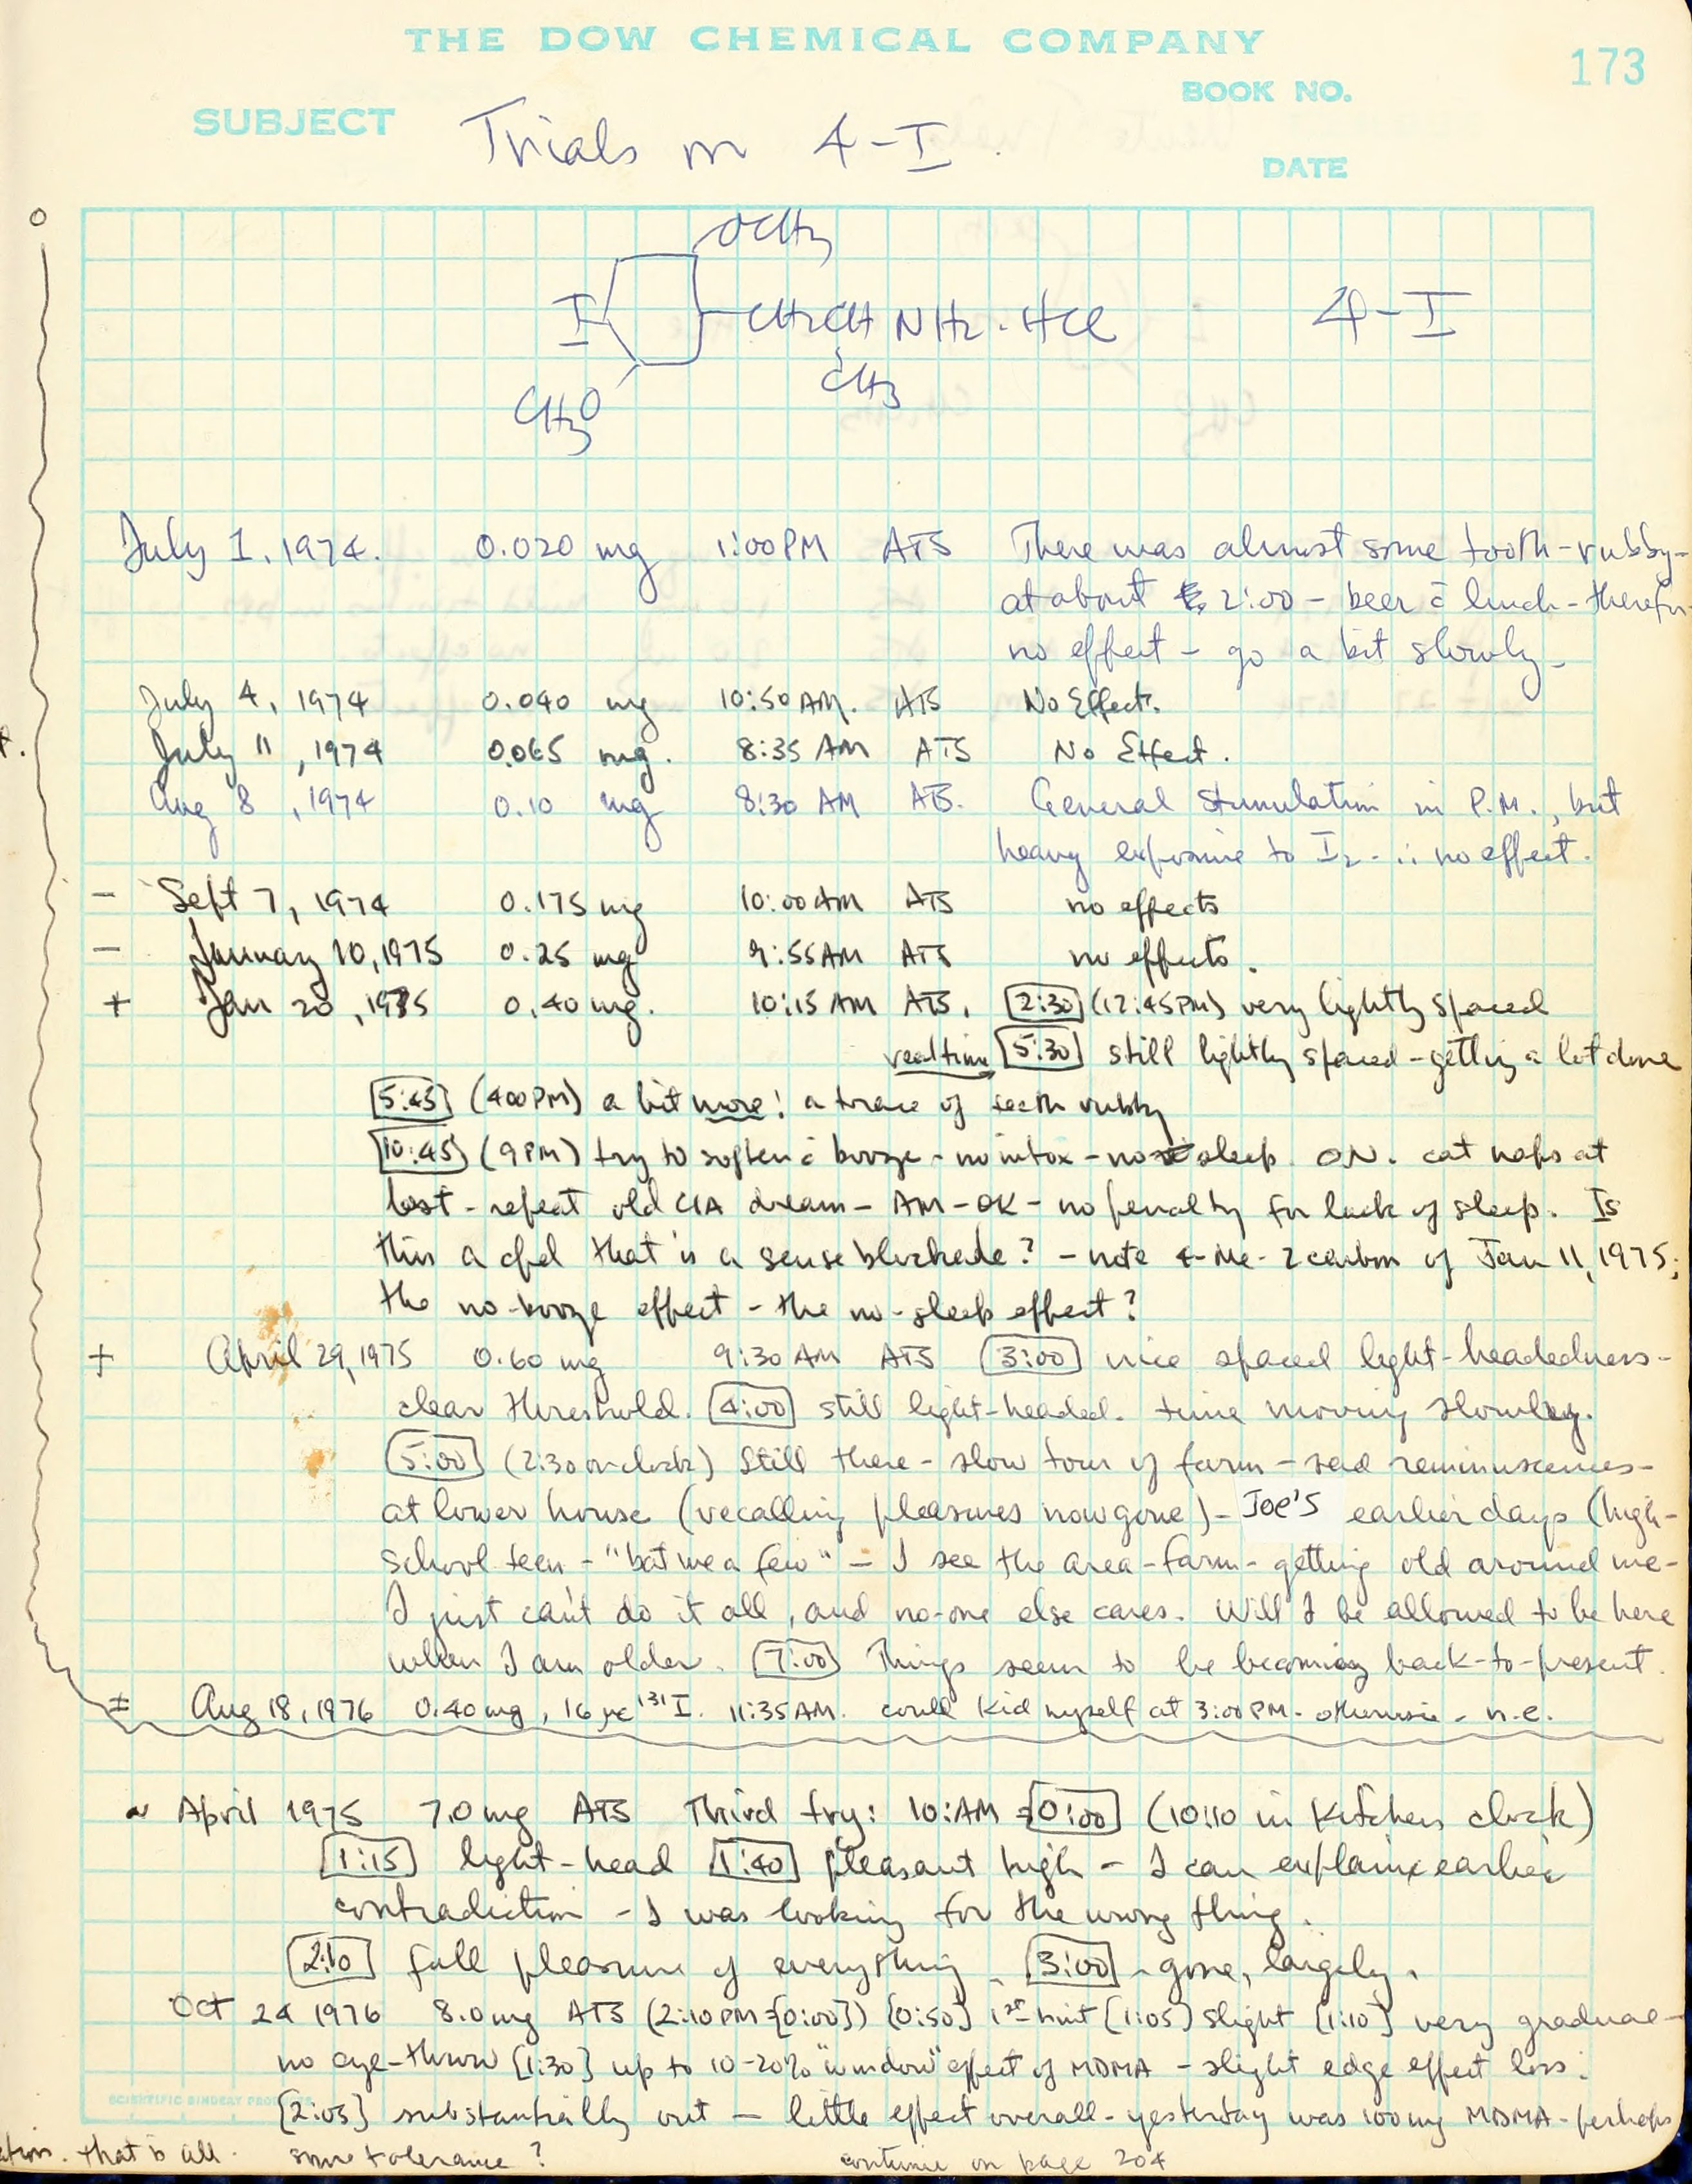 THE DOW CHEMICAL COMPANY
173
BOOK NO.
SUBJECT Trials on 4-I
DATE
OCH3
I -CH2CH NH2 · HCl 4-I
CH3
CH3O
July 1, 1974. 0.020 mg 1:00 PM ATS There was almost some tooth-rubby-
at about 2:00 - beer c̄ lunch - therefor
no effect - go a bit slowly -
July 4, 1974 0.040 mg 10:50 AM. ATS No Effect.
July 11, 1974 0.065 mg. 8:35 AM ATS No Effect.
Aug 8, 1974 0.10 mg 8:30 AM ATS. General Stimulation in P.M., but
heavy exposure to I2 - ∴ no effect.
- Sept 7, 1974 0.175 mg 10:00 AM ATS no effects
- January 10, 1975 0.25 mg 9:55 AM ATS no effects.
+ Jan 20, 1975 0.40 mg. 10:15 AM ATS. [2:30] (12:45 PM) very lightly spaced
real time [5:30] still lightly spaced - getting a lot done
[5:45] (400 PM) a bit more! a trace of teeth rubby
[10:45] (9 PM) try to soften c̄ booze - no intox - no sleep O.N. cat naps at
best - repeat old CIA dream - AM-OK - no penalty for lack of sleep. Is
this a cpd that is a sense blockade? - note 4-Me-2 carbon of Jan 11, 1975;
the no-booze effect - the no-sleep effect?
+ April 29, 1975 0.60 mg 9:30 AM ATS [3:00] nice spaced light-headedness -
clear threshold. [4:00] still light-headed. time moving slowly.
[5:00] (2:30 o'clock) Still there - slow tour of farm - sad reminiscences -
at lower house (recalling pleasures now gone) - Joe's earlier days (high-
school teen - "bat me a few" - I see the area - farm - getting old around me -
I just can't do it all, and no-one else cares. Will I be allowed to be here
when I am older. [7:00] Things seem to be becoming back-to-present.
± Aug 18, 1976 0.40 mg, 16 µc 131I. 11:35 AM. could kid myself at 3:00 PM - otherwise - n.e.
~ April 1975 7.0 mg ATS Third try: 10:AM = [0:00] (10:10 in Kitchen clock)
[1:15] light-head [1:40] pleasant high - I can explain earlier
contradiction - I was looking for the wrong thing.
[2:10] full pleasure of everything. [3:00] ~ gone, largely.
Oct 24 1976 8.0 mg ATS (2:10 PM = [0:00]) [0:50] 1st hint [1:05] slight [1:10] very gradual -
no eye-throw [1:30] up to 10-20% "window" effect of MDMA - slight edge effect loss.
[2:05] substantially out - little effect overall - yesterday was 100 mg MDMA - perhaps
SCIENTIFIC BINDERY PRODUCTS
that is all. some tolerance? continue on page 204